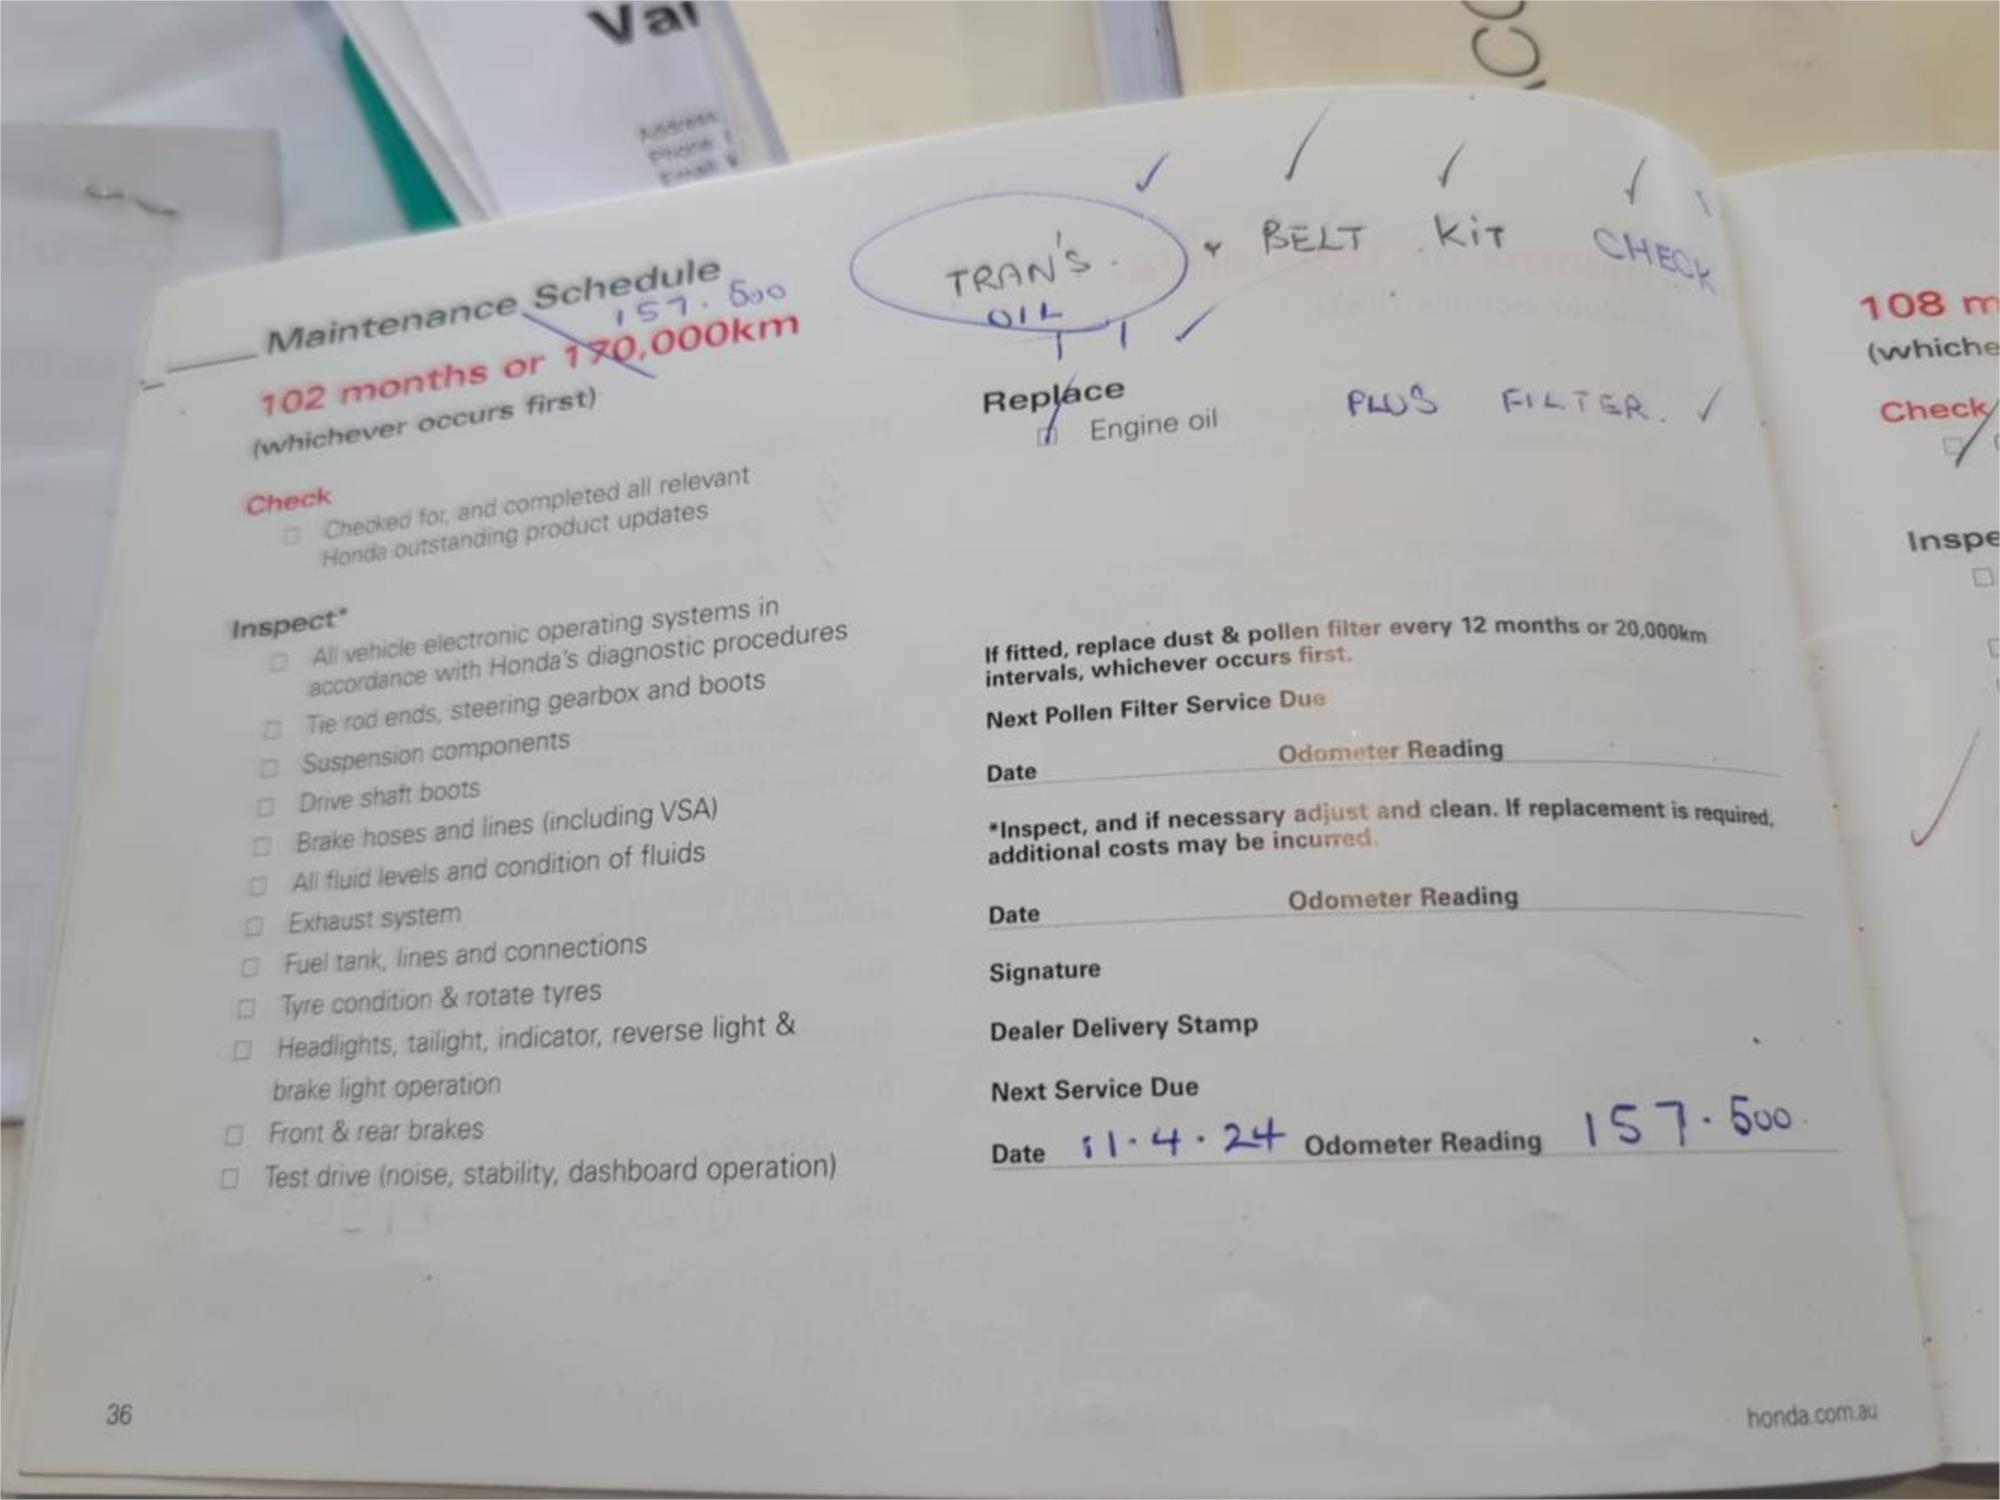 Val
Address:
Phone:
Email:
Maintenance Schedule
157.500
102 months or 170,000km
(whichever occurs first)
Check
Checked for, and completed all relevant
Honda outstanding product updates
Inspect*
All vehicle electronic operating systems in
accordance with Honda's diagnostic procedures
Tie rod ends, steering gearbox and boots
Suspension components
Drive shaft boots
Brake hoses and lines (including VSA)
All fluid levels and condition of fluids
Exhaust system
Fuel tank, lines and connections
Tyre condition & rotate tyres
Headlights, tailight, indicator, reverse light &
brake light operation
Front & rear brakes
Test drive (noise, stability, dashboard operation)
36
TRAN'S. & BELT KIT CHECK
OIL
Replace
Engine oil PLUS FILTER.
If fitted, replace dust & pollen filter every 12 months or 20,000km
intervals, whichever occurs first.
Next Pollen Filter Service Due
Date Odometer Reading
*Inspect, and if necessary adjust and clean. If replacement is required,
additional costs may be incurred.
Date Odometer Reading
Signature
Dealer Delivery Stamp
Next Service Due
Date 11.4.24 Odometer Reading 157.500.
honda.com.au
108 m
(whiche
Check
Inspe